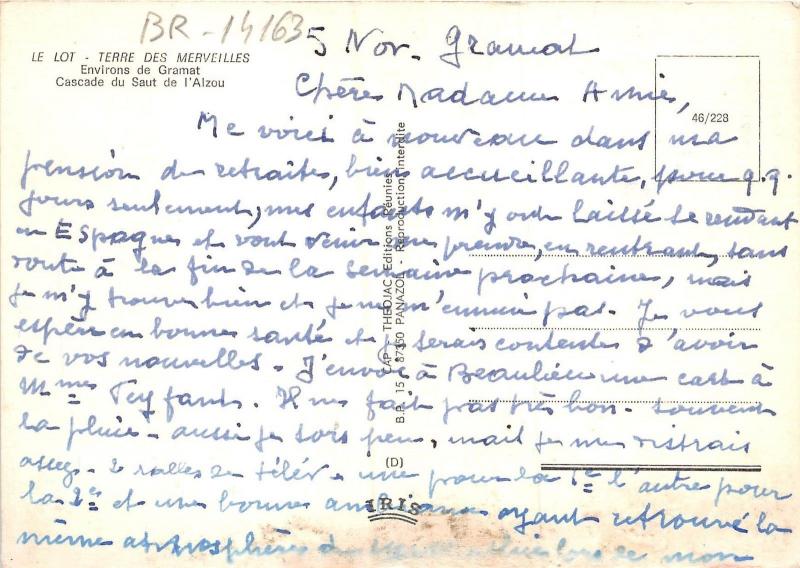 BR-14163
LE LOT - TERRE DES MERVEILLES
Environs de Gramat
Cascade du Saut de l'Alzou
46/228
CAP - THEOJAC Editions Réunies
B.P. 15 - 87350 PANAZOL - Reproduction interdite
(D)
IRIS
5 Nov. Gramat
Chère Madame Amie,
Me voici à nouveau dans ma
pension de retraités, bien accueillante, pour q.q.
jours seulement, mes enfants m'y ont laissé se rendant
en Espagne et vont venir me prendre, en rentrant, sans
doute à la fin de la semaine prochaine, mais
je m'y trouve bien et je ne m'ennuie pas. Je vous
espère en bonne santé et je serais contente d'avoir
de vos nouvelles. J'envoie à Beaulieu une carte à
Mme Teyfant. Il ne fait pas très bon. souvent
la pluie - aussi je sors peu, mais je me distrais
assez. 2 salles de télév. une pour la 1e l'autre pour
la 2e et une bonne ambiance ayant retrouvé la
même atmosphère de mon